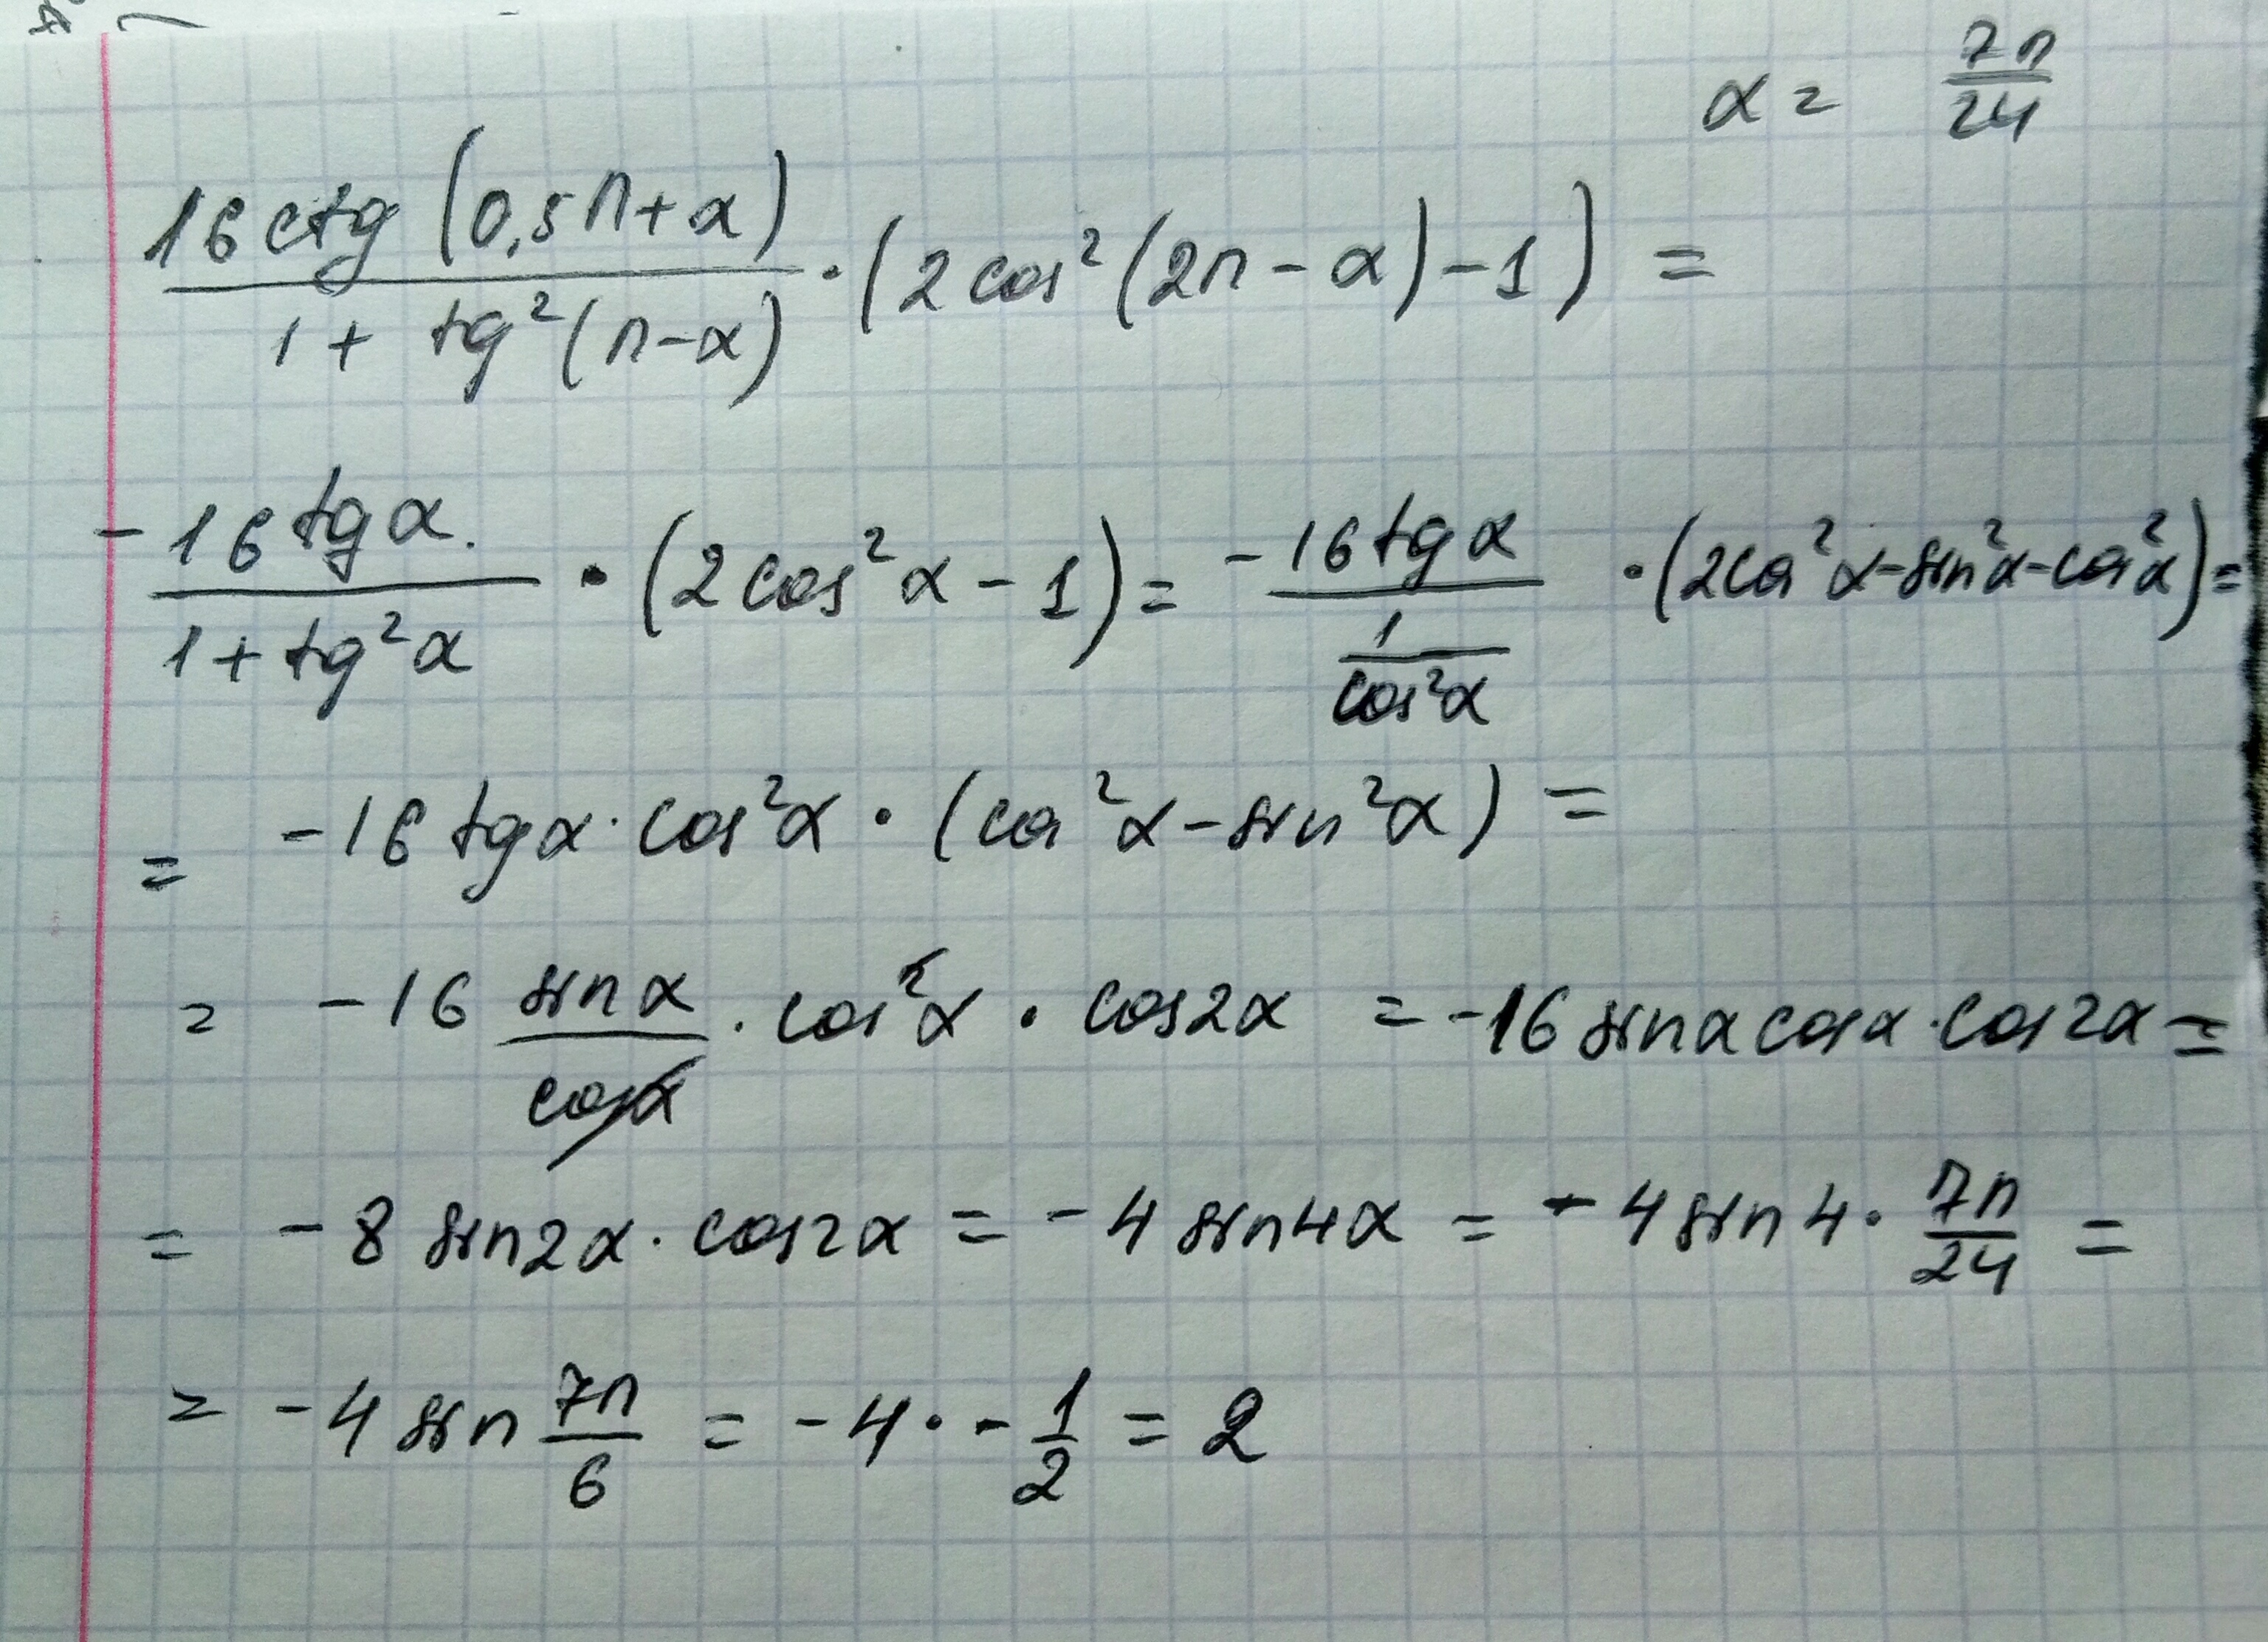 α = 7π/24
16 ctg (0,5π+α) / 1 + tg²(π-α) · (2 cos² (2π - α) - 1) =
-16 tg α. / 1 + tg²α · (2 cos²α - 1) = -16 tg α / 1/cos²α · (2cos²α - sin²α - cos²α) =
= -16 tg α · cos²α · (cos²α - sin²α) =
= -16 sin α / cos α · cos²α · cos2α = -16 sin α cos α · cos 2α =
= -8 sin2α · cos2α = -4 sin4α = -4 sin 4 · 7π/24 =
= -4 sin 7π/6 = -4 · -1/2 = 2